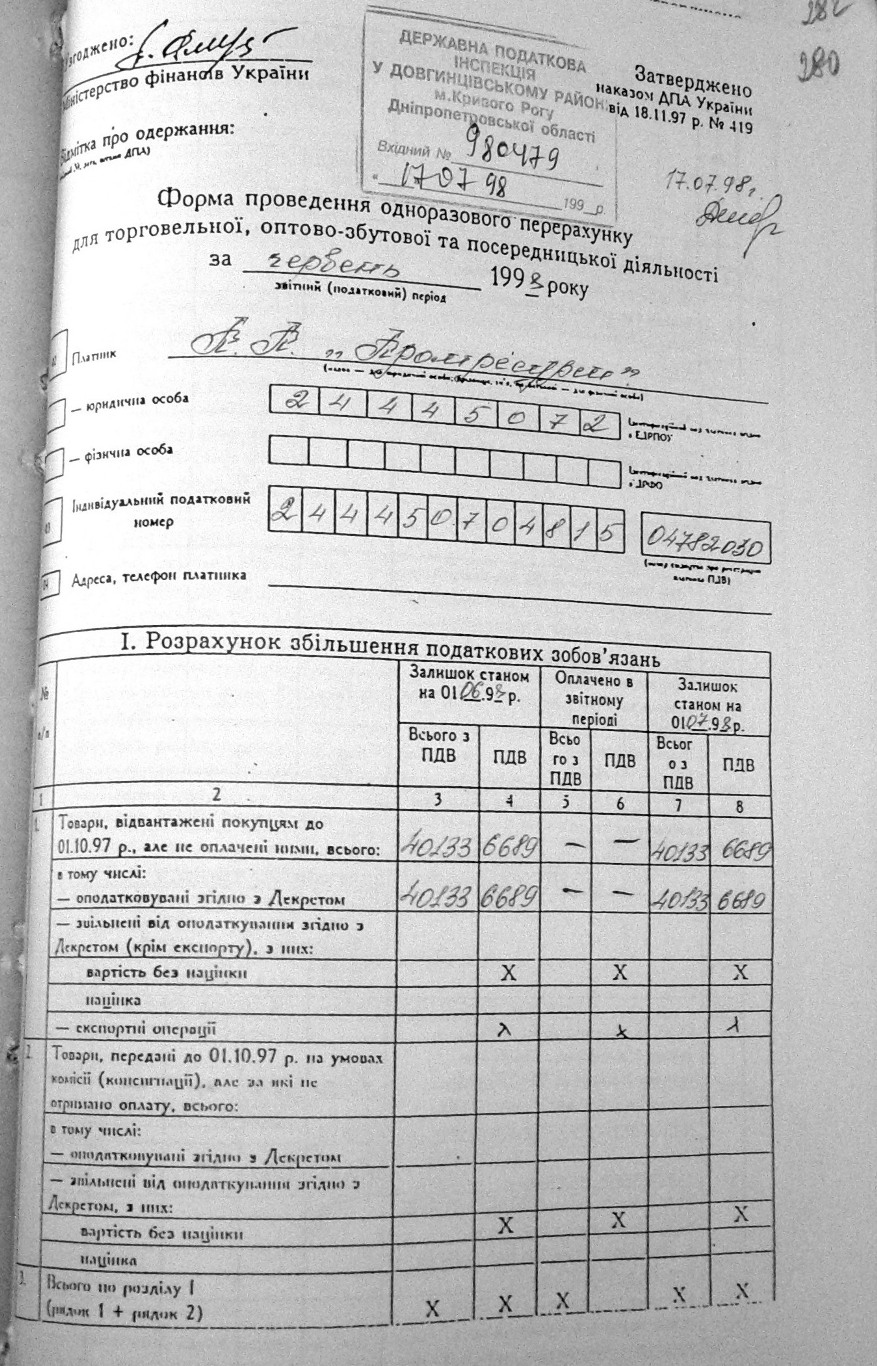 280
Узгоджено:
Міністерство фінансів України
Відмітка про одержання:
ДЕРЖАВНА ПОДАТКОВА
ІНСПЕКЦІЯ
У ДОВГИНЦІВСЬКОМУ РАЙОНІ
м.Кривого Рогу
Дніпропетровської області
Вхідний № 980479
" 170798 199 р.
Затверджено
наказом ДПА України
від 18.11.97 р. № 419
17.07.98г.
Форма проведення одноразового перерахунку
для торговельної, оптово-збутової та посередницької діяльності
за червень 1998 року
звітний (податковий) період
Платник
— юридична особа 24445072
з ЄДРПОУ
— фізична особа
з ДРФО
03 Індивідуальний податковий номер 244450704815 04782030
платника ПДВ)
04 Адреса, телефон платника
І. Розрахунок збільшення податкових зобов'язань
№ п/п
Залишок станом на 01.06.98 р.
Оплачено в звітному періоді
Залишок станом на 01.07.98р.
Всього з ПДВ ПДВ Всьо го з ПДВ ПДВ Всьог о з ПДВ ПДВ
1 2 3 4 5 6 7 8
1. Товари, відвантажені покупцям до
01.10.97 р., але не оплачені ними, всього: 40133 6689 — — 40133 6689
в тому числі:
— оподатковувані згідно з Декретом 40133 6689 — — 40133 6689
— звільнені від оподаткування згідно з
Декретом (крім експорту), з них:
вартість без націнки X X X
націнка
— експортні операції х х х
2. Товари, передані до 01.10.97 р. на умовах
комісії (консигнації), але за які не
отримано оплату, всього:
в тому числі:
— оподатковувані згідно з Декретом
— звільнені від оподаткування згідно з
Декретом, з них:
вартість без націнки X X X
націнка
3. Всього по розділу I
(рядок 1 + рядок 2) X X X X X